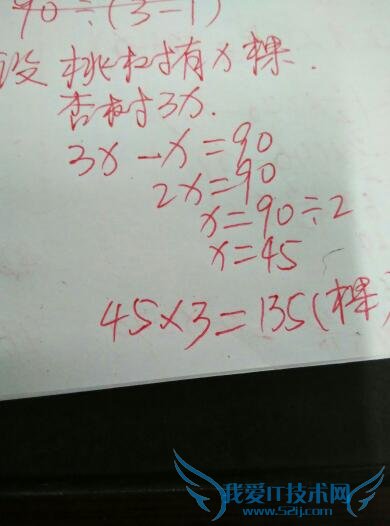 90÷(3-1)
设桃树有x棵.
杏树3x.
3x-x=90
2x=90
x=90÷2
x=45
45×3=135(棵)
我爱IT技术网
www.52ij.com